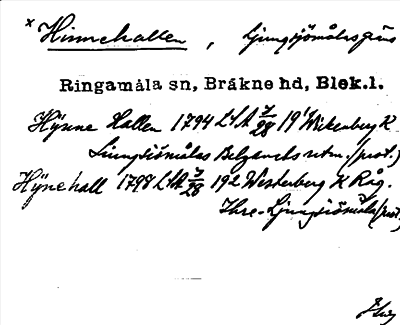 x Hinnehallen, Ljungsjömålagräns
Ringamåla sn, Bräkne hd, Blek.l.
Hÿnne Hallen 1794 LSA 7/28 19' Wikenberg K
Ljungsiömålas Belganets utm. (punt.)
Hÿnehall 1798 LSA 7/28 19 2 Westerberg K Råg.
Ihre-Ljungsiömåla (punt.)